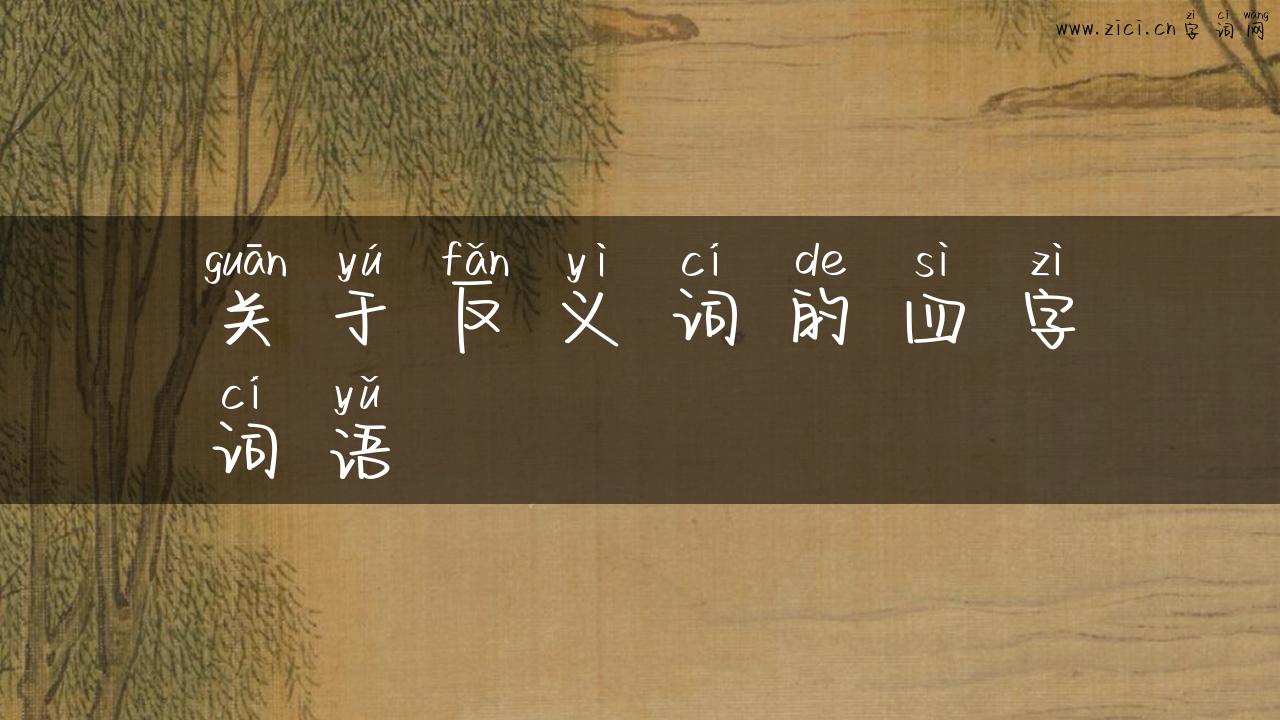 zì cí wǎng
www.zici.cn 字词网
guān yú fǎn yì cí de sì zì
关于反义词的四字
cí yǔ
词语